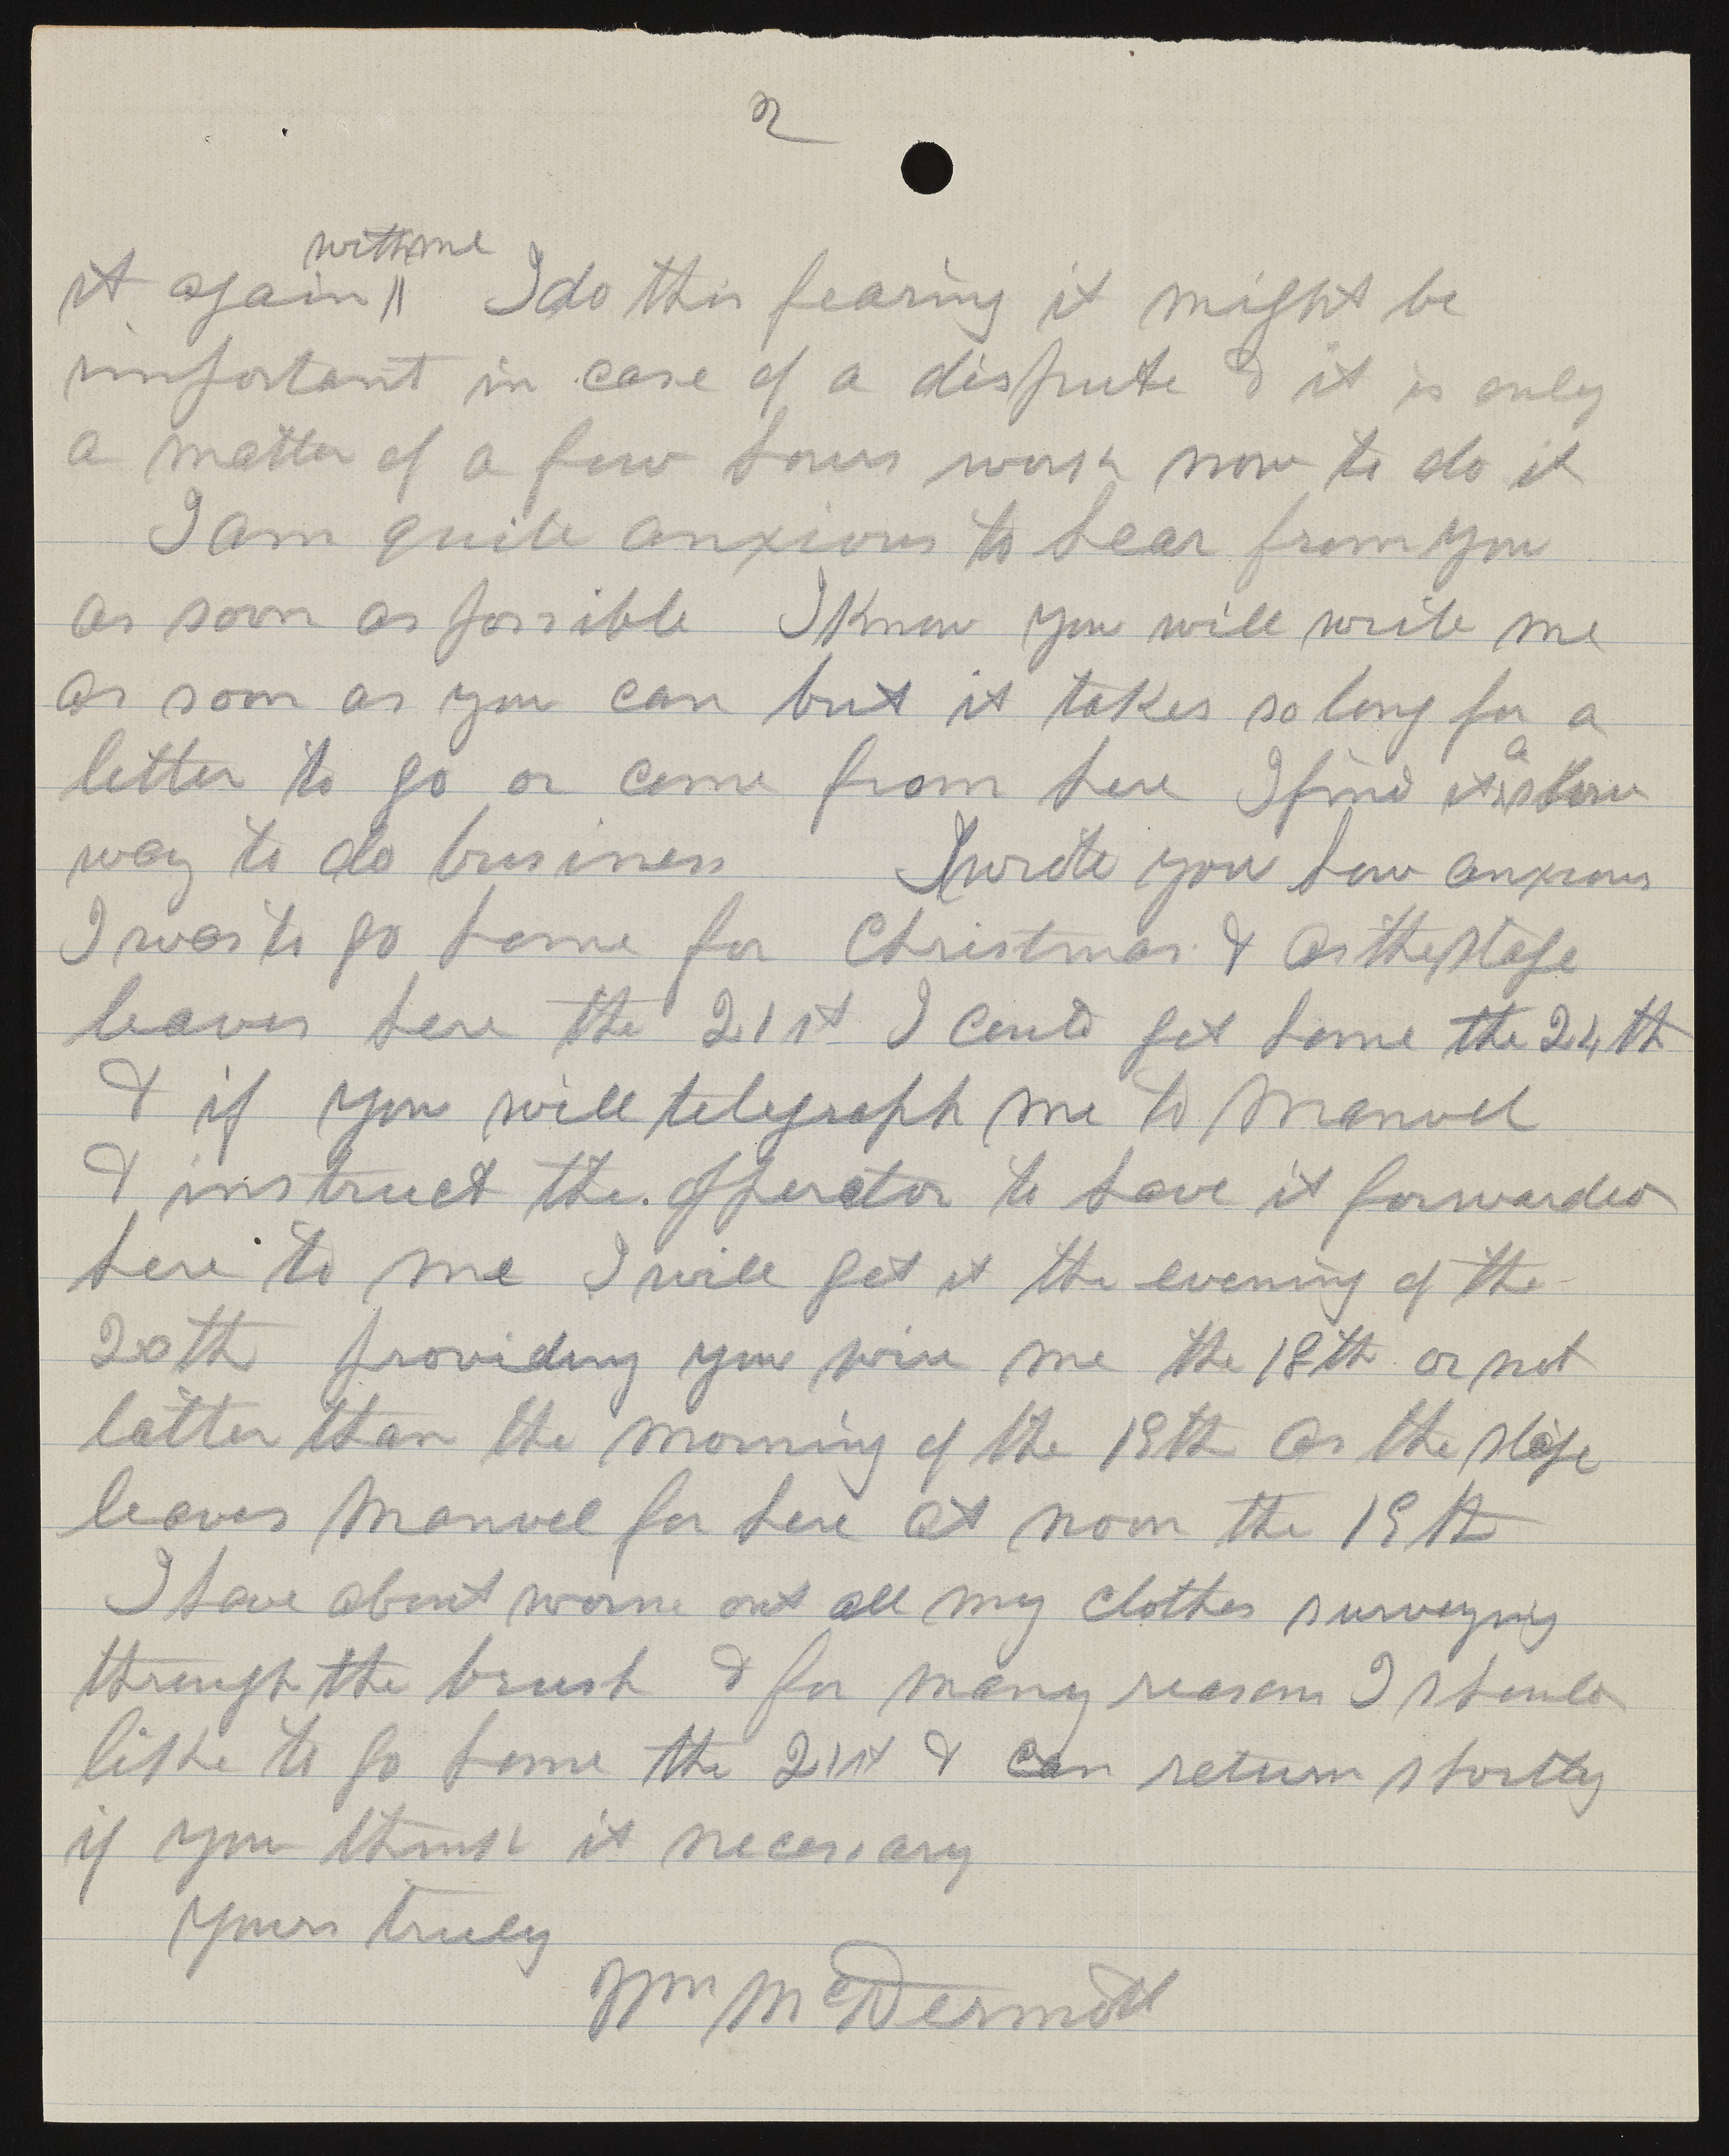 2
with me
it again || I do this fearing it might be
important in case of a dispute & it is only
a matter of a few hours work now to do it
I am quite anxious to hear from you
as soon as possible I know you will write me
as soon as you can but it takes so long for a
letter to go or come from here I find it is a slow
way to do business I wrote you how anxious
I was to go home for Christmas & as the stage
leaves here the 21st I could get home the 24th
& if you will telegraph me to Manvel
& instruct the operator to have it forwarded
here to me I will get it the evening of the
20th providing you wire me the 18th or not
latter than the morning of the 19th as the stage
leaves Manvel for here at noon the 19th
I have about worne out all my clothes surveying
through the brush & for many reasons I should
like to go home the 21st & can return shortly
if you think it necessary
Yours truly
Wm McDermott